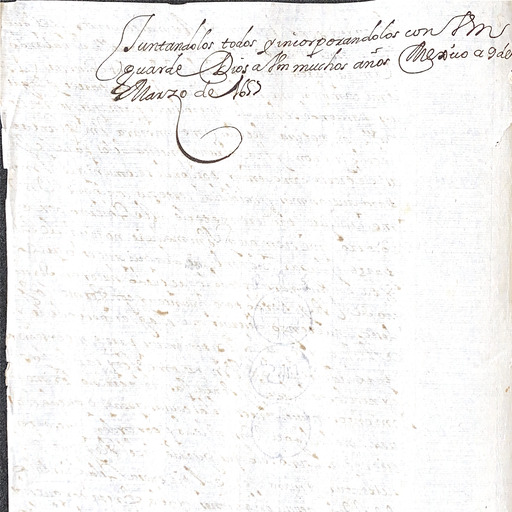 Juntandolos todos y incorporandolos con Vm
guarde Dios a Vm muchos años Mexico a 9 de
Marzo de 1653